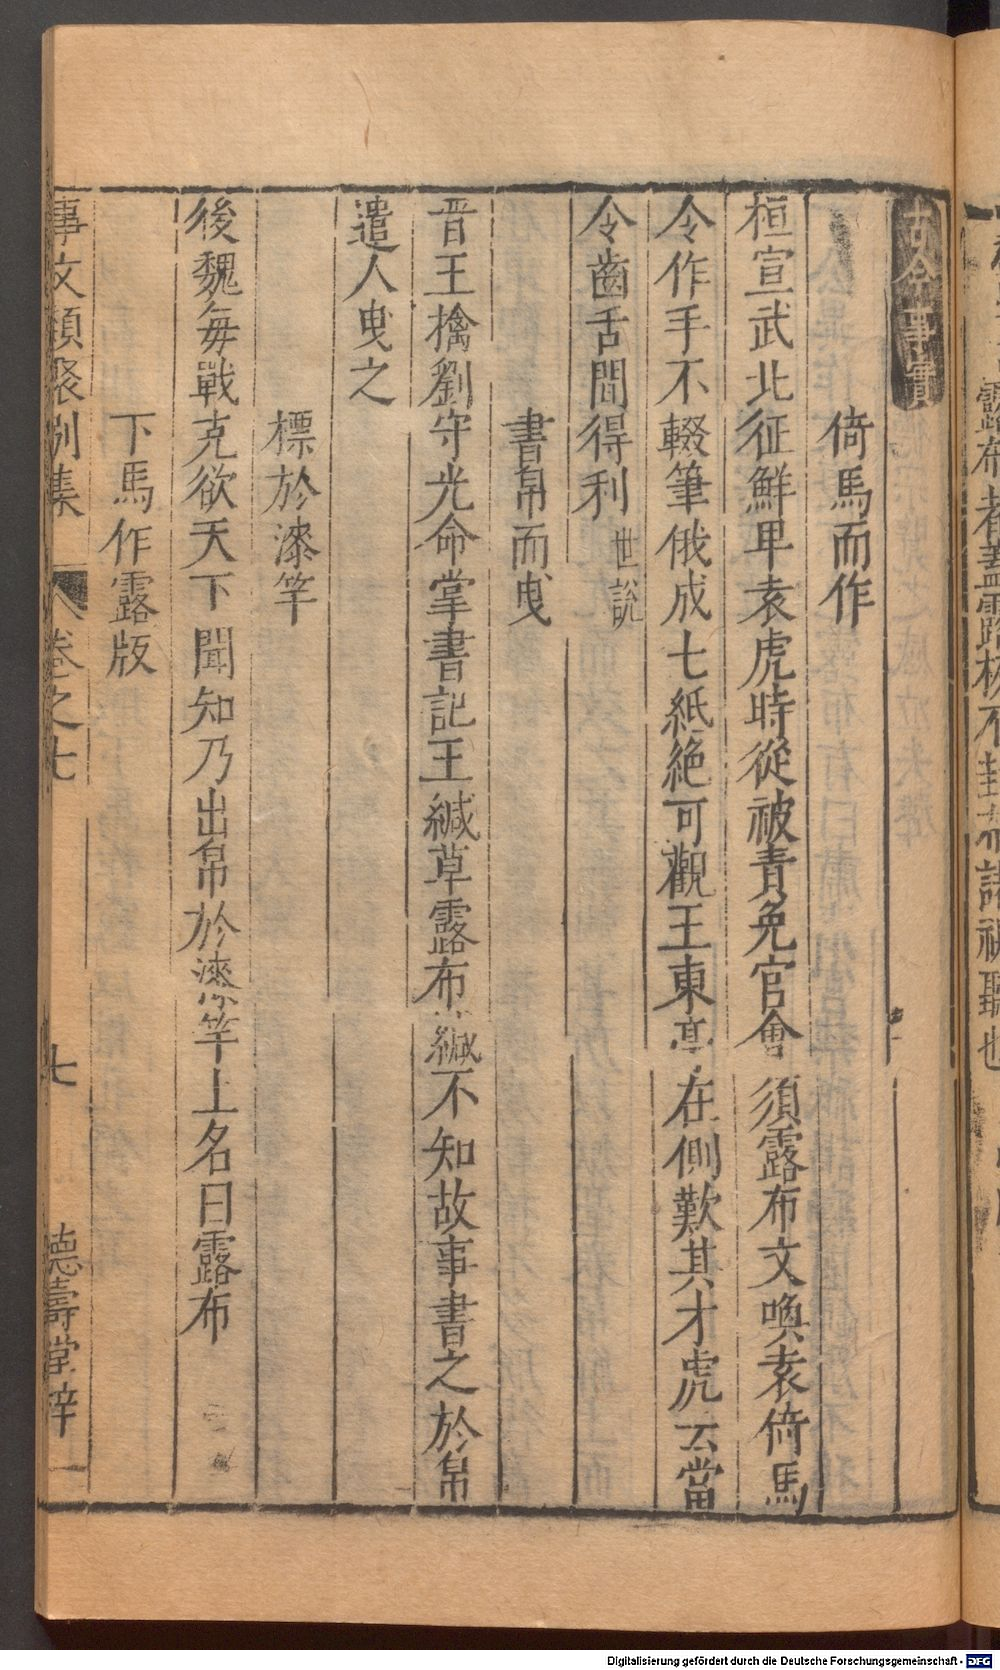 露布者蓋露板不封布諸視聽也
古今事實
倚馬而作
桓宣武北征鮮卑袁虎時從被責免官會須露布文喚袁倚馬
令作手不輟筆俄成七紙絶可觀王東亭在側歎其才虎云當
令齒舌間得利世說
書帛而曳
晋王擒劉守光命掌書記王緘草露布緘不知故事書之於帛
遣人曳之
標於漆竿
後魏每戰克欲天下聞知乃出帛於漆竿上名曰露布
下馬作露版
事文類聚別集 卷之七 七 德壽堂梓
Digitalisierung gefördert durch die Deutsche Forschungsgemeinschaft - DFG